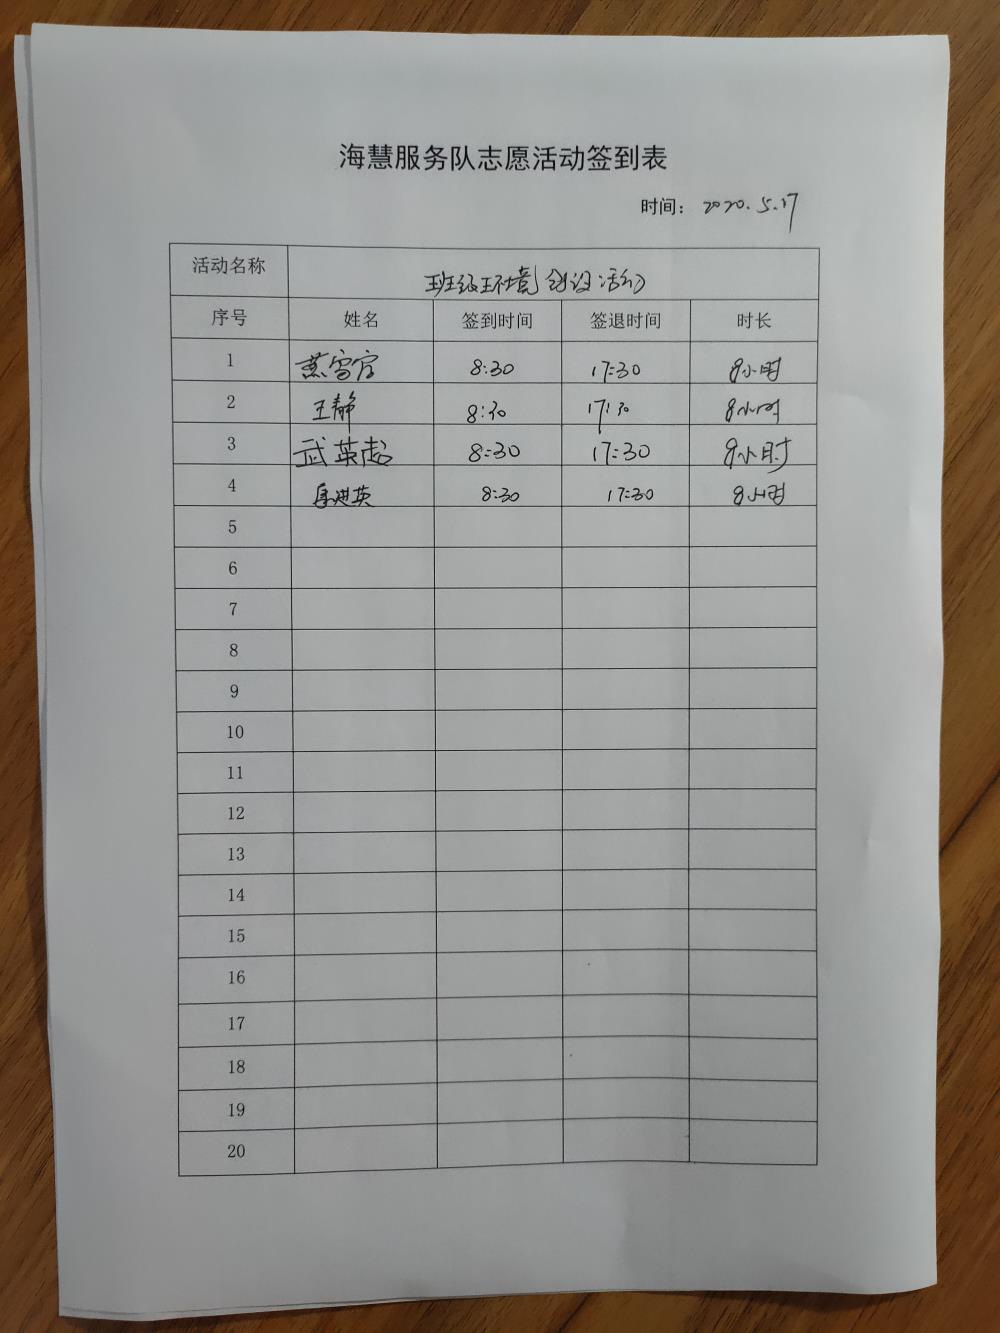 海慧服务队志愿活动签到表
时间： 2020.5.17
活动名称 班级环境创设活动
序号 姓名 签到时间 签退时间 时长
1 8:30 17:30 8小时
2 王静 8:30 17:30 8小时
3 武英超 8:30 17:30 8小时
4 8:30 17:30 8小时
5
6
7
8
9
10
11
12
13
14
15
16
17
18
19
20